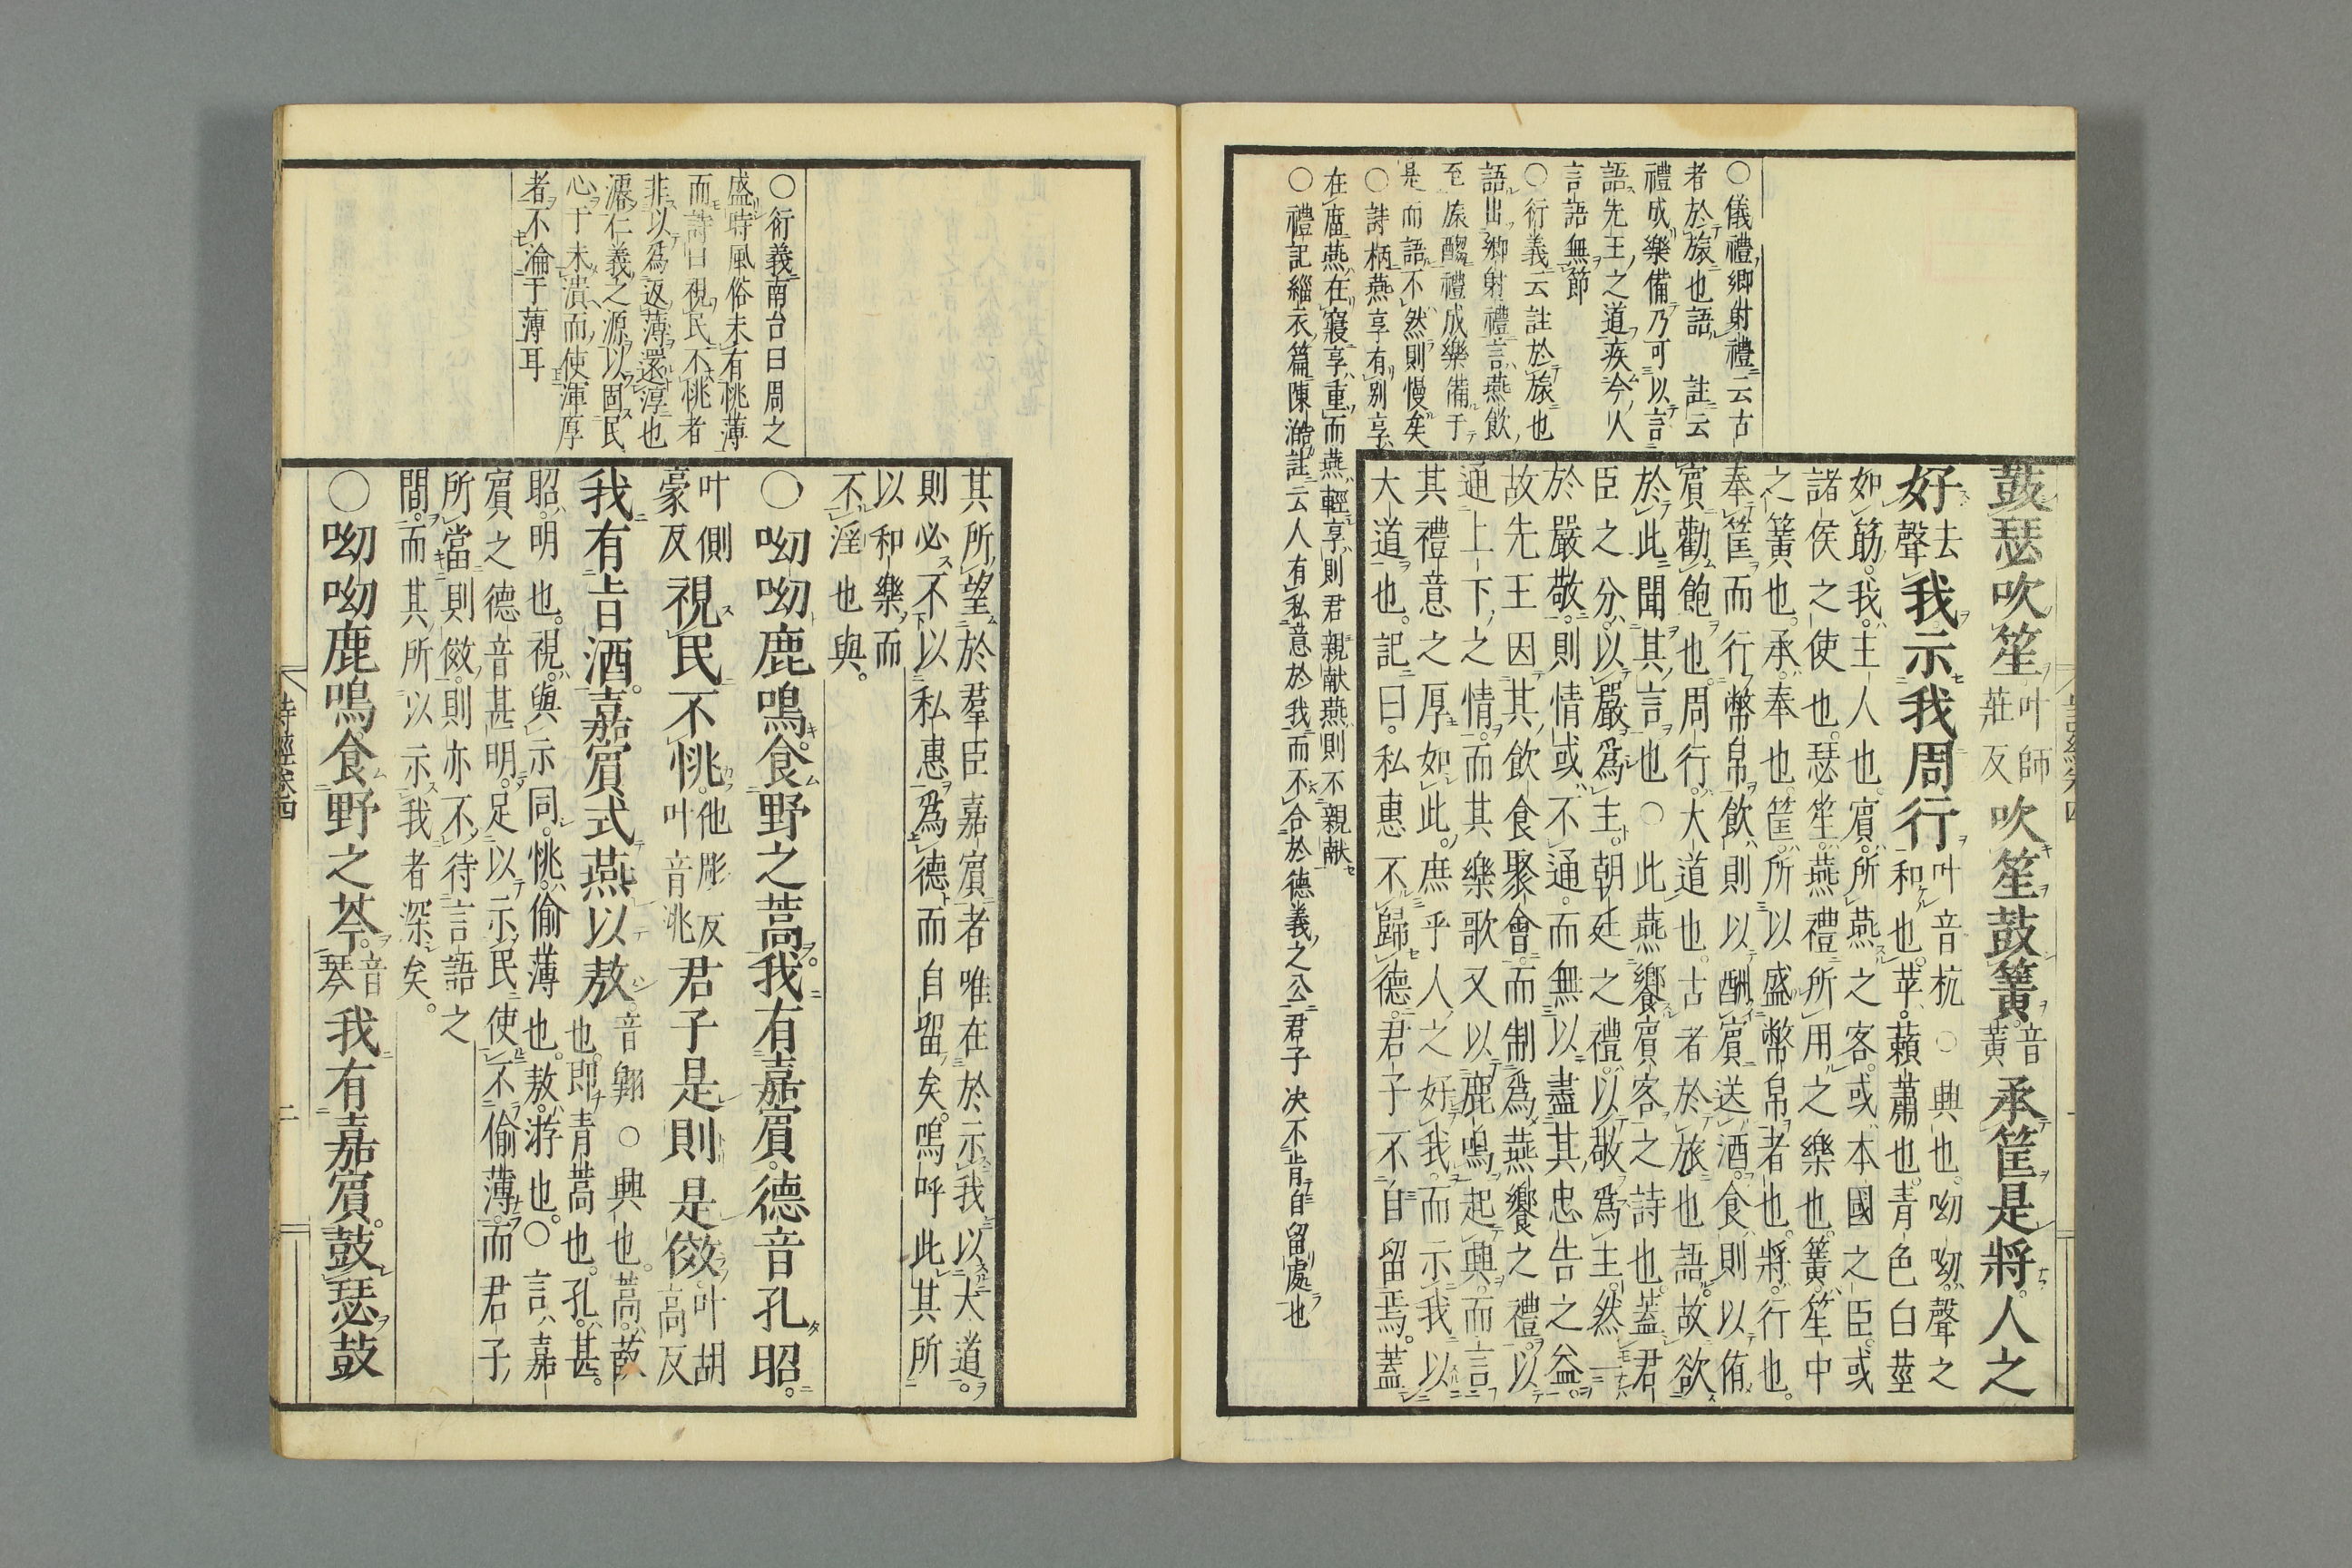 鼓瑟吹笙叶師莊反吹笙鼓簧音黃承筐是將人之
好去聲我示我周行叶音杭○興也呦呦聲之
和也苹藾蕭也青色白莖
如筯我主人也賔所燕之客或本國之臣或
諸侯之使也瑟笙燕禮所用之樂也簧笙中
之簧也承奉也筐所以盛幣帛者也將行也
奉筐而行幣帛飲則以酬賔送酒食則以侑
賔勸飽也周行大道也古者於旅也語故欲
於此聞其言也○此燕饗賔客之詩也蓋君
臣之分以嚴爲主朝廷之禮以敬爲主然一
於嚴敬則情或不通而無以盡其忠告之益
故先王因其飲食聚會而制爲燕饗之禮以
通上下之情而其樂歌又以鹿鳴起興而言
其禮意之厚如此庶乎人之好我而示我以
大道也記曰私惠不歸德君子不自留焉蓋
○儀禮鄉射禮云古
者於旅也語 註云
禮成樂備乃可以言
語先王之道疾今人
言語無節
○衍義云註於旅也
語出鄉射禮言燕飲
至旅酬禮成樂備于
是而語不然則慢矣
○詩柄燕享有別享
在廟燕在寢享重而燕輕享則君親献燕則不親献
○禮記緇衣篇陳澔註云人有私意於我而不合於德義之公君子决不肯自留處也
其所望於羣臣嘉賔者唯在於示我以大道
則必不以私惠爲德而自留矣嗚呼此其所
以和樂而
不淫也與
○呦呦鹿鳴食野之蒿我有嘉賔德音孔昭
叶側豪反視民不恌他彫反叶音洮君子是則是傚叶胡高反
我有旨酒嘉賔式燕以敖音翺○興也蒿菣
也即青蒿也孔甚
昭明也視與示同恌偷薄也敖游也○言嘉
賔之德音甚明足以示民使不偷薄而君子
所當則傚則亦不待言語之
間而其所以示我者深矣
○呦呦鹿鳴食野之芩音琴我有嘉賔鼓瑟鼓
○衍義南台曰周之
盛時風俗未有恌薄
而詩曰視民不恌者
非以爲返薄還淳也
濬仁義之源以固民
心于未潰而使渾厚
者不淪于薄耳
詩經卷四
二